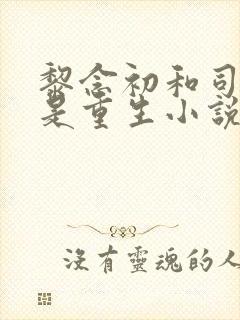 黎念初和司
是重生小說
沒有靈魂的人